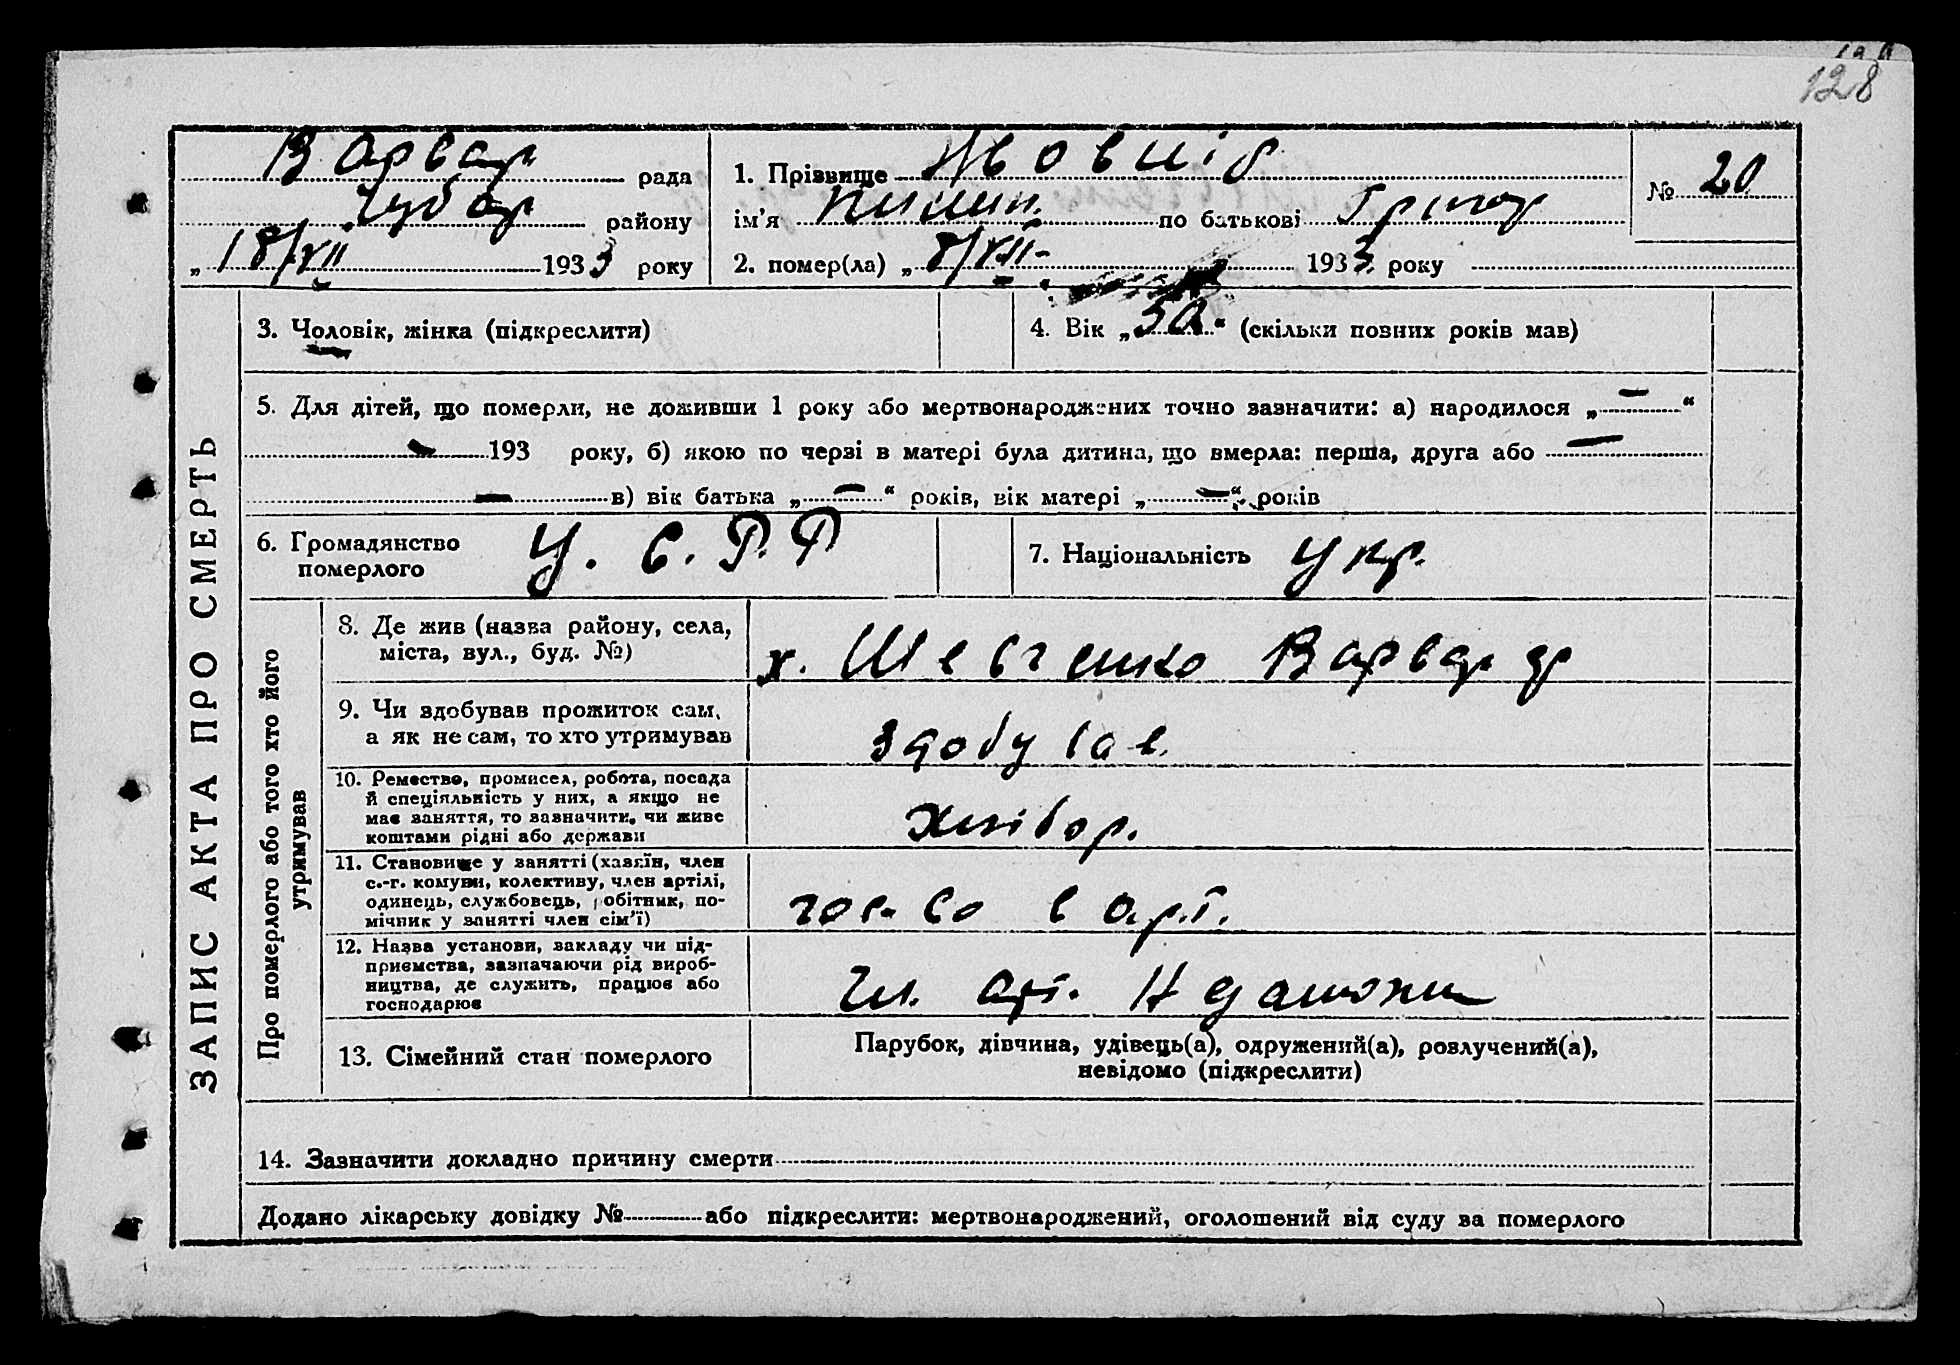 128
Варвар рада
Чубар району
„18/VII 1933 року
1. Прізвище Жовніб
ім'я Пилип. по батькові Грігор
2. помер(ла) „8/VII- 1933 року
№ 20
ЗАПИС АКТА ПРО СМЕРТЬ
3. Чоловік, жінка (підкреслити)
4. Вік „30“ (скільки повних років мав)
5. Для дітей, що померли, не доживши 1 року або мертвонароджених точно зазначити: а) народилося „—“
— 193 року, б) якою по черзі в матері була дитина, що вмерла: перша, друга або —
— в) вік батька „—“ років, вік матері „—“ років
6. Громадянство
померлого
У. С. Р. Р
7. Національність Укр.
Про померлого або того хто його
утримував
8. Де жив (назва району, села,
міста, вул., буд. №)
х. Шевченко Варвар
9. Чи здобував прожиток сам,
а як не сам, то хто утримував
здобував.
10. Ремество, промисел, робота, посада
й спеціяльність у них, а якщо не
має заняття, то зазначити, чи живе
коштами рідні або держави
Хлібор.
11. Становище у занятті (хазяїн, член
с.-г. комуни, колективу, член артілі,
одинець, службовець, робітник, по-
мічник у занятті член сім'ї)
в арт.
12. Назва установи, закладу чи під-
приємства, зазначаючи рід вироб-
ництва, де служить, працює або
господарює
Чл. арт.
13. Сімейний стан померлого
Парубок, дівчина, удівець(а), одружений(а), розлучений(а),
невідомо (підкреслити)
14. Зазначити докладно причину смерти
Додано лікарську довідку № або підкреслити: мертвонароджений, оголошений від суду за померлого